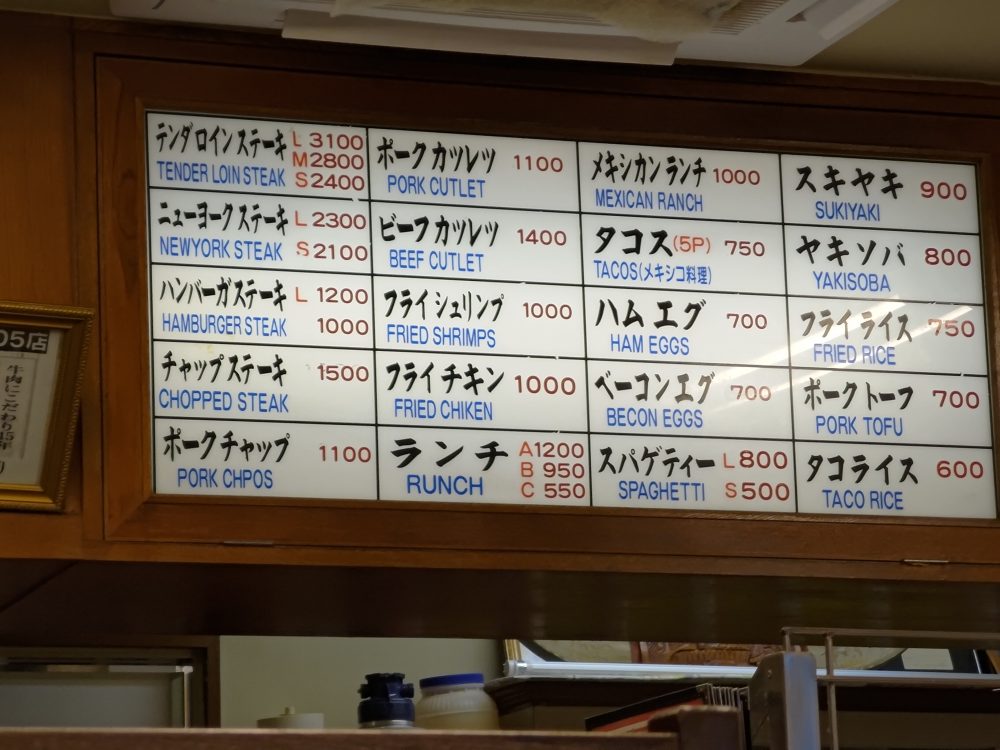 テンダロインステーキ L 3100
M 2800
TENDER LOIN STEAK S 2400
ニューヨークステーキ L 2300
NEWYORK STEAK S 2100
ハンバーガステーキ L 1200
HAMBURGER STEAK 1000
チャップステーキ 1500
CHOPPED STEAK
ポークチャップ 1100
PORK CHPOS
ポークカツレツ 1100
PORK CUTLET
ビーフカツレツ 1400
BEEF CUTLET
フライシュリンプ 1000
FRIED SHRIMPS
フライチキン 1000
FRIED CHIKEN
ランチ A 1200
B 950
RUNCH C 550
メキシカンランチ 1000
MEXICAN RANCH
タコス(5P) 750
TACOS(メキシコ料理)
ハムエグ 700
HAM EGGS
ベーコンエグ 700
BECON EGGS
スパゲティー L 800
SPAGHETTI S 500
スキヤキ 900
SUKIYAKI
ヤキソバ 800
YAKISOBA
フライライス 750
FRIED RICE
ポークトーフ 700
PORK TOFU
タコライス 600
TACO RICE
05店
牛肉にこだわり45年